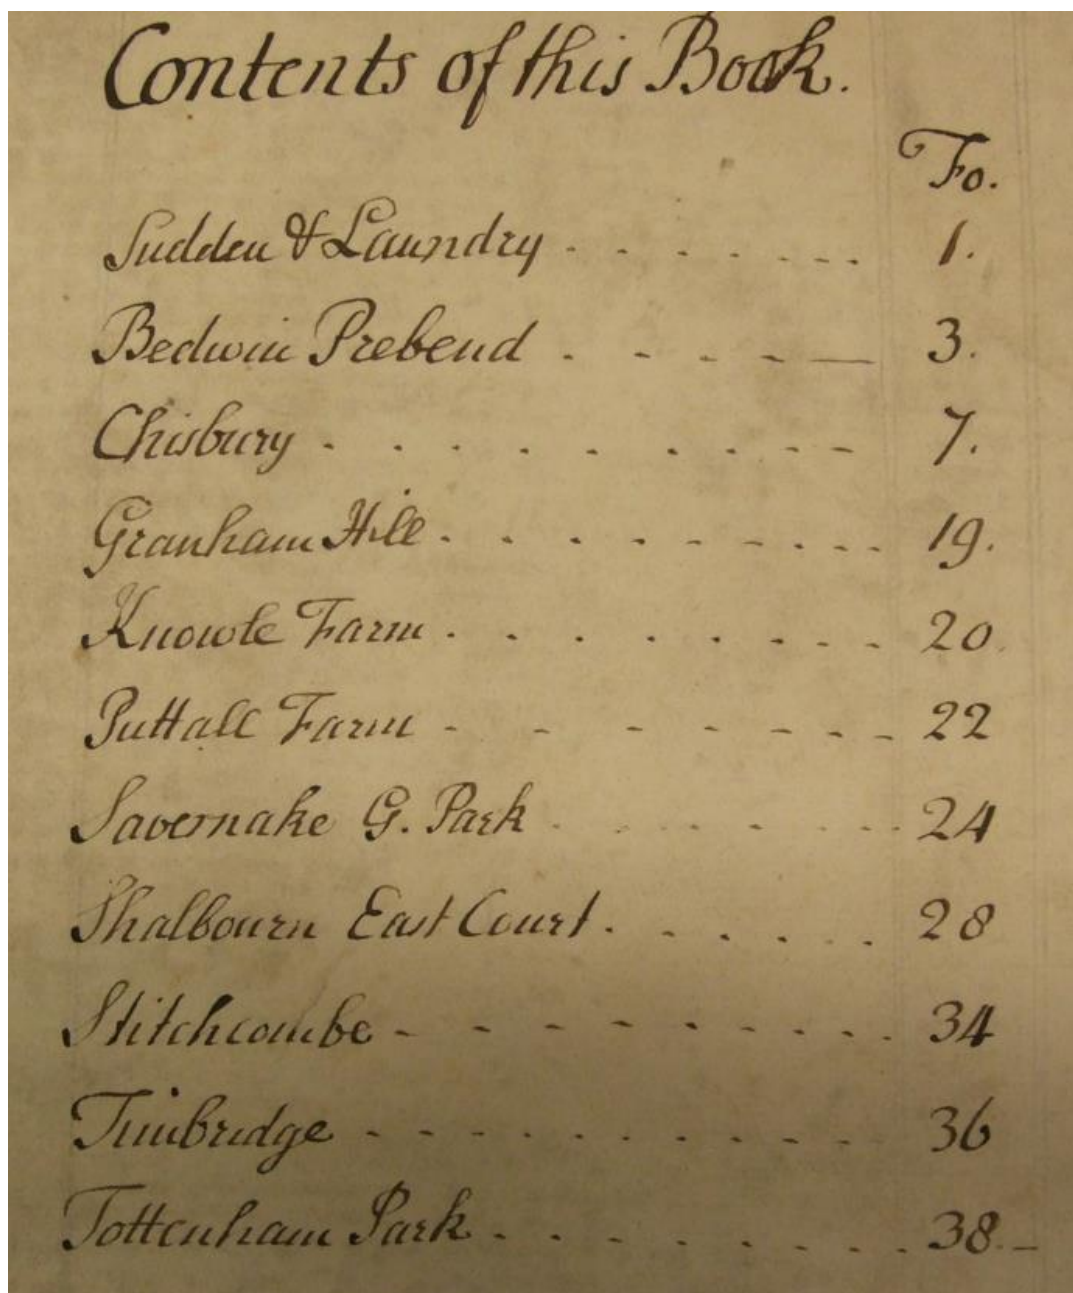 Contents of this Book.
Fo.
Sudden & Laundry . . . . . . . . 1.
Bedwin Prebend . - - - - — 3.
Chisbury . . . . . . . - - - 7.
Granham Hill . . . . . . - . - - - 19.
Knowle Farm . . . . . . - - - 20.
Puttall Farm - - - - - - - - - 22
Savernake G. Park . . . . . . - - - 24
Shalbourn East Court . . . . . . 28
Stitchcombe - - - - - - - - . . 34
Timbridge - - - - - - - - - - - 36
Tottenham Park . . . . . . . . . 38.–